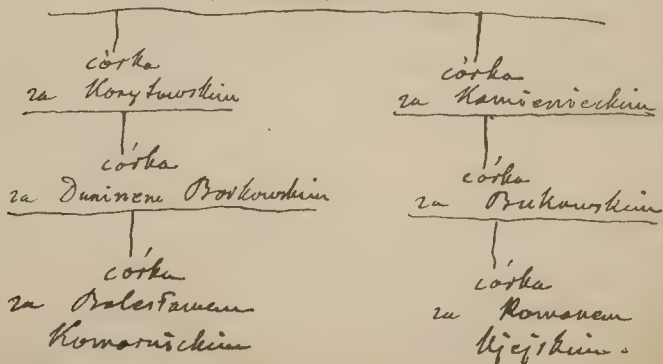 córka
za Korytowskim
córka
za Duninem Borkowskim
córka
za Bolesławem
Komornickim
córka
za Kamienieckim
córka
za Bukowskim
córka
za Romanem
Ujejskim.